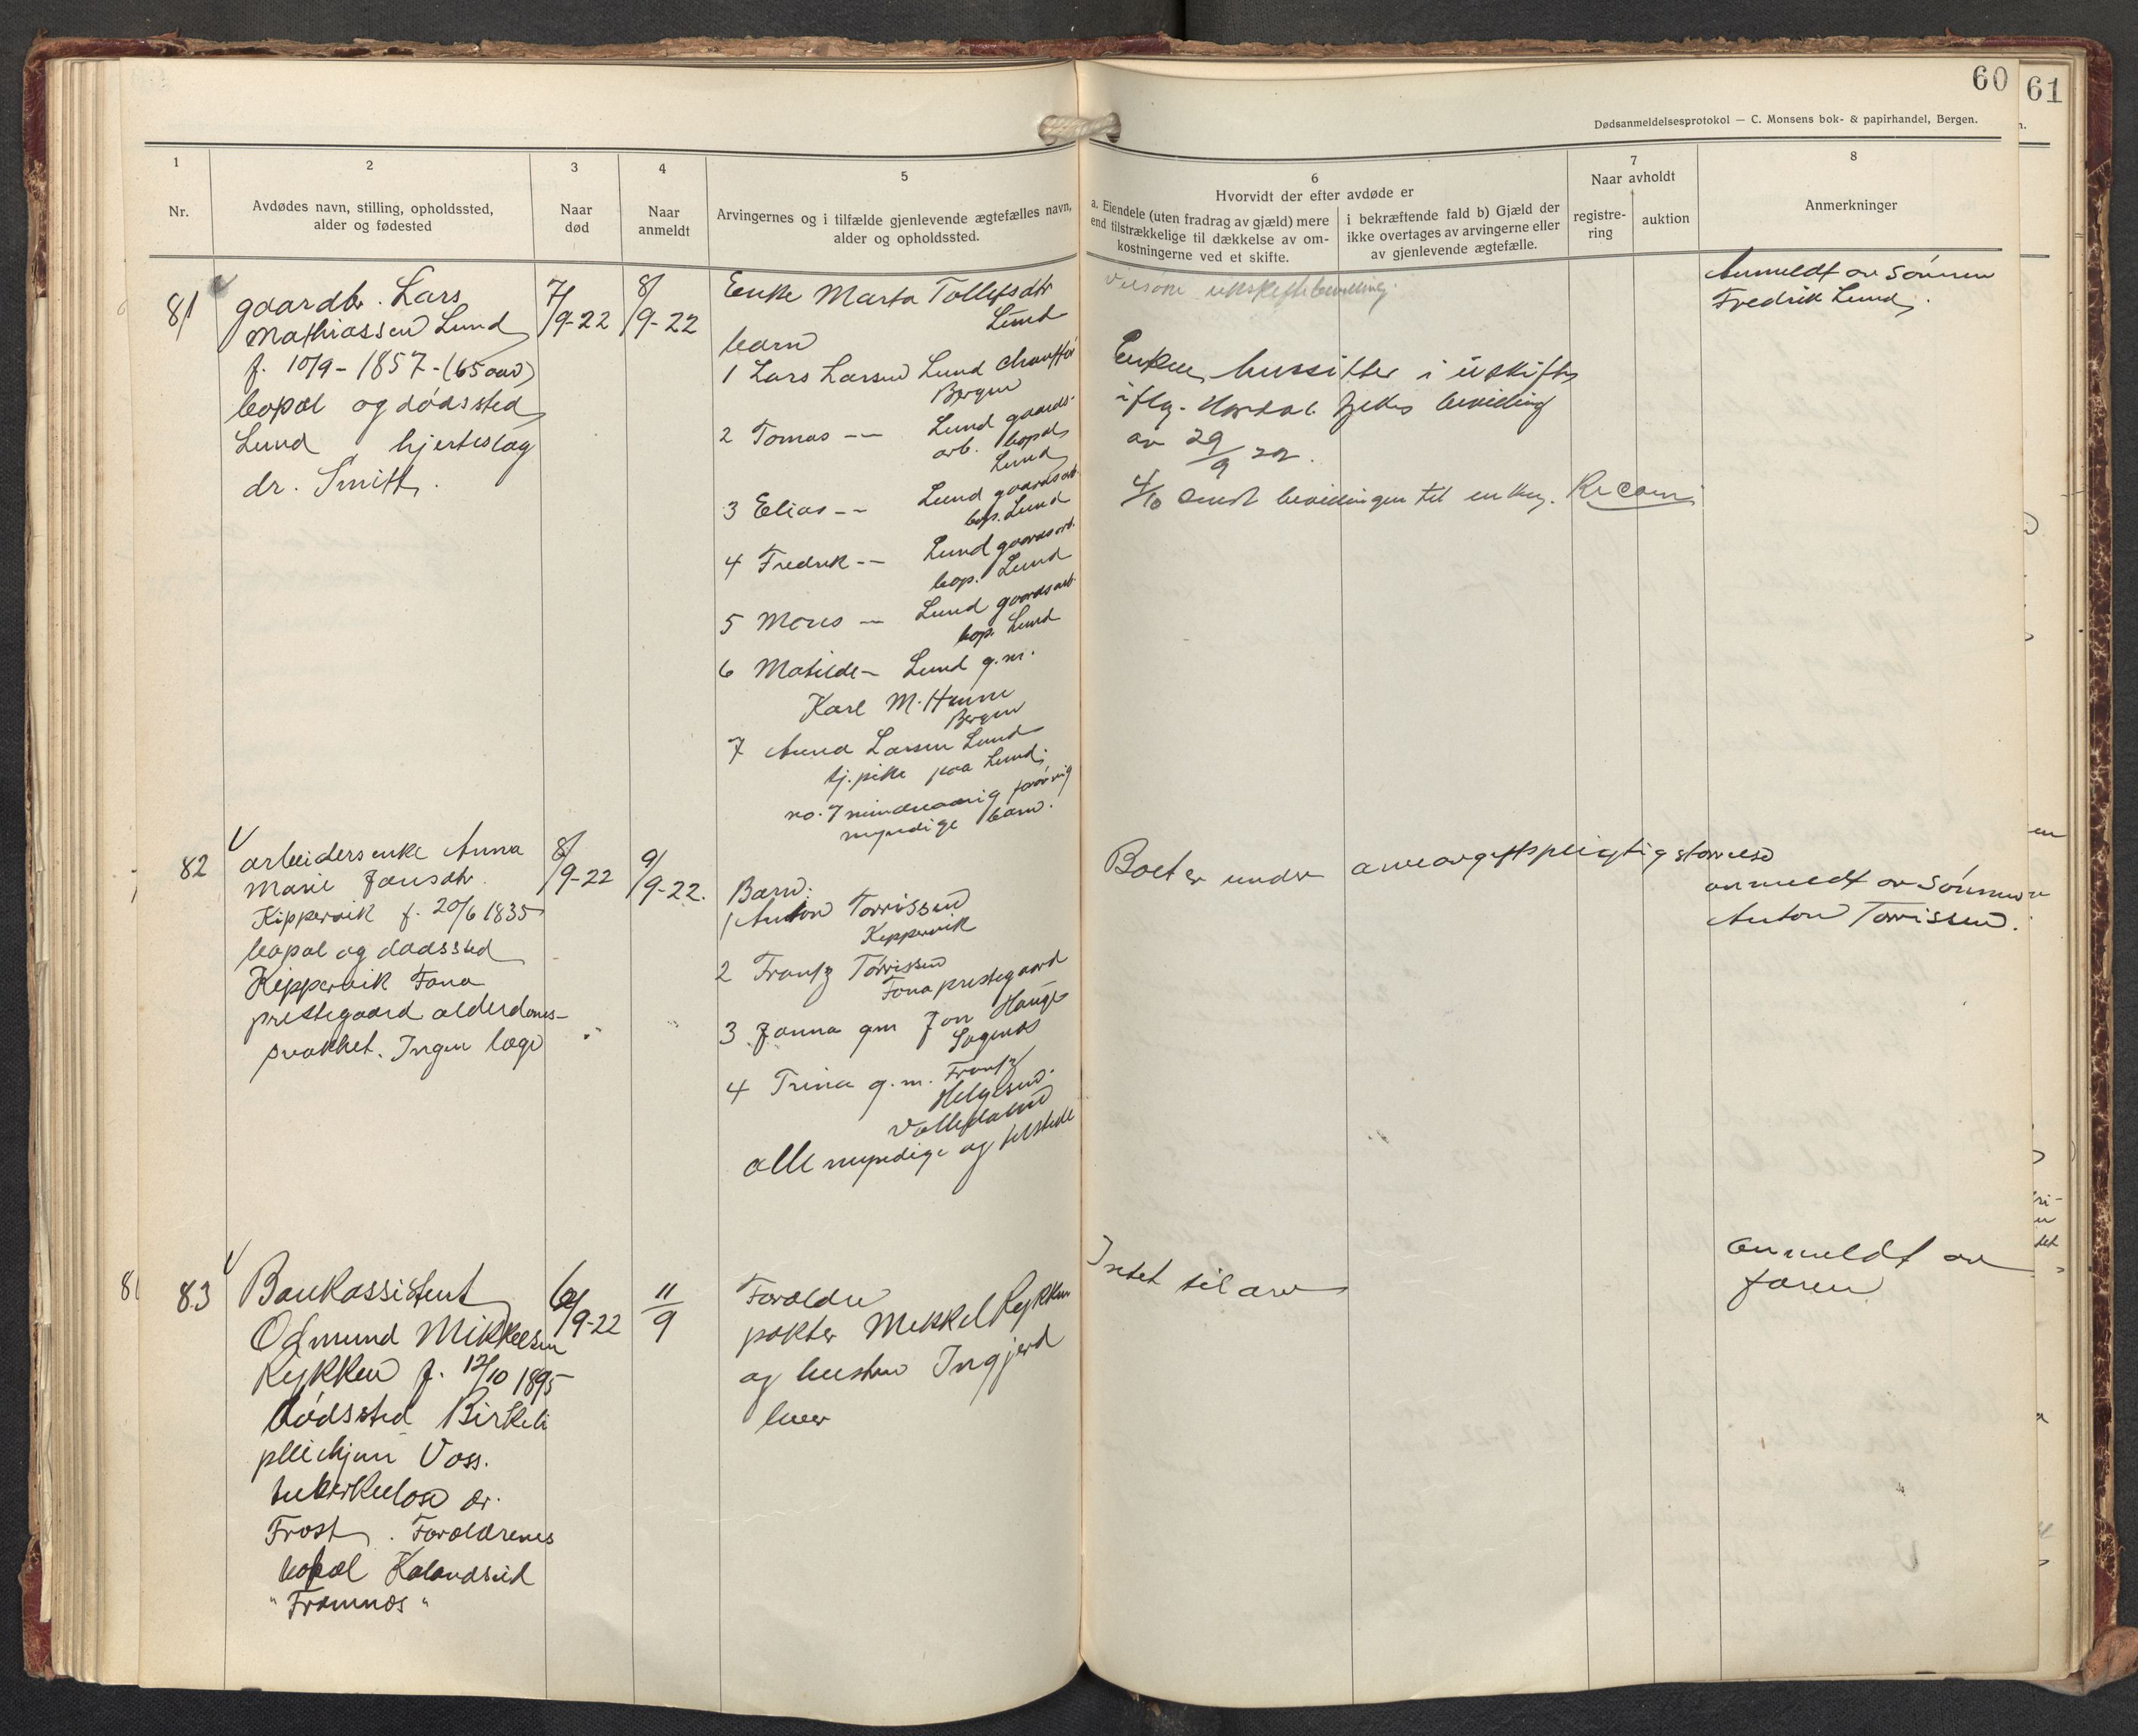 60
61
Dødsanmeldelsesprotokol — C. Monsens bok- & papirhandel, Bergen.
1
2
3
4
5
6
7
8
Nr.
Avdødes navn, stilling, opholdssted,
alder og fødested
Naar
død
Naar
anmeldt
Arvingernes og i tilfælde gjenlevende ægtefælles navn,
alder og opholdssted.
Hvorvidt der efter avdøde er
a. Eiendele (uten fradrag av gjæld) mere
end tilstrækkelige til dækkelse av om-
kostningerne ved et skifte.
i bekræftende fald b) Gjæld der
ikke overtages av arvingerne eller
av gjenlevende ægtefælle.
Naar avholdt
registre-
ring
auktion
Anmerkninger
81
gaardbr. Lars
Mathiassen Lund
f. 10/9 - 1857 - (65 aar)
bopæl og dødssted
Lund hjerteslag
dr. Smitt.
7/9-22
8/9-22
Enke Marta Tollefsdtr
Lund
barn
1 Lars Larsen Lund chauffør
Bergen
2 Tomas -- Lund gaards-
arb. bopæl
Lund
3 Elias -- Lund gaardsarb
bop. Lund
4 Fredrik -- Lund gaardsarb.
bop. Lund
5 Mons -- Lund gaardsarb.
bop. Lund
6 Matilde - Lund g.m.
Karl M.
Bergen
7 Anna Larsen Lund
tj. pike paa Lund.
no. 7 mindreaarig forøvrig
myndige barn.
uskiftebevilling.
Enken hussitter i uskifte
iflg. Hordal. fylkes bevilling
av 29/9 22.
4/10 sendt bevillingen til enken. Recom
Anmeldt av sønnen
Fredrik Lund.
82
arbeidersenke Anna
Marie Jansdtr.
Kippervik f. 20/6 1835
bopæl og dødssted
Kippervik Fana
prestegaard alderdoms-
svakhet. Ingen læge
8/9-22
9/9-22.
Barn:
1 Anton Torrissen
Kippervik
2 Frantz Torrissen
Fana prestegaard
3 Janna gm Jon Hauge
4 Trina g.m. Frantz
Helgesen.
alle myndige og tilstede
Boet er under arveavgiftspligtig størrelse
anmeldt av sønnen
Anton Torrissen.
83
Bankassistent
Odmund Mikkelsen
Rykken f. 12/10 1895
Dødssted Birkeli
pleiehjem Voss.
tuberkulose dr.
Frost. Forældrenes
bopæl Kalandseid
"Framnæs"
6/9-22
11/9
Forældre
pakter Mikkel Rykken
og hustru Ingjerd
lever
Intet til arv
anmeldt av
faren